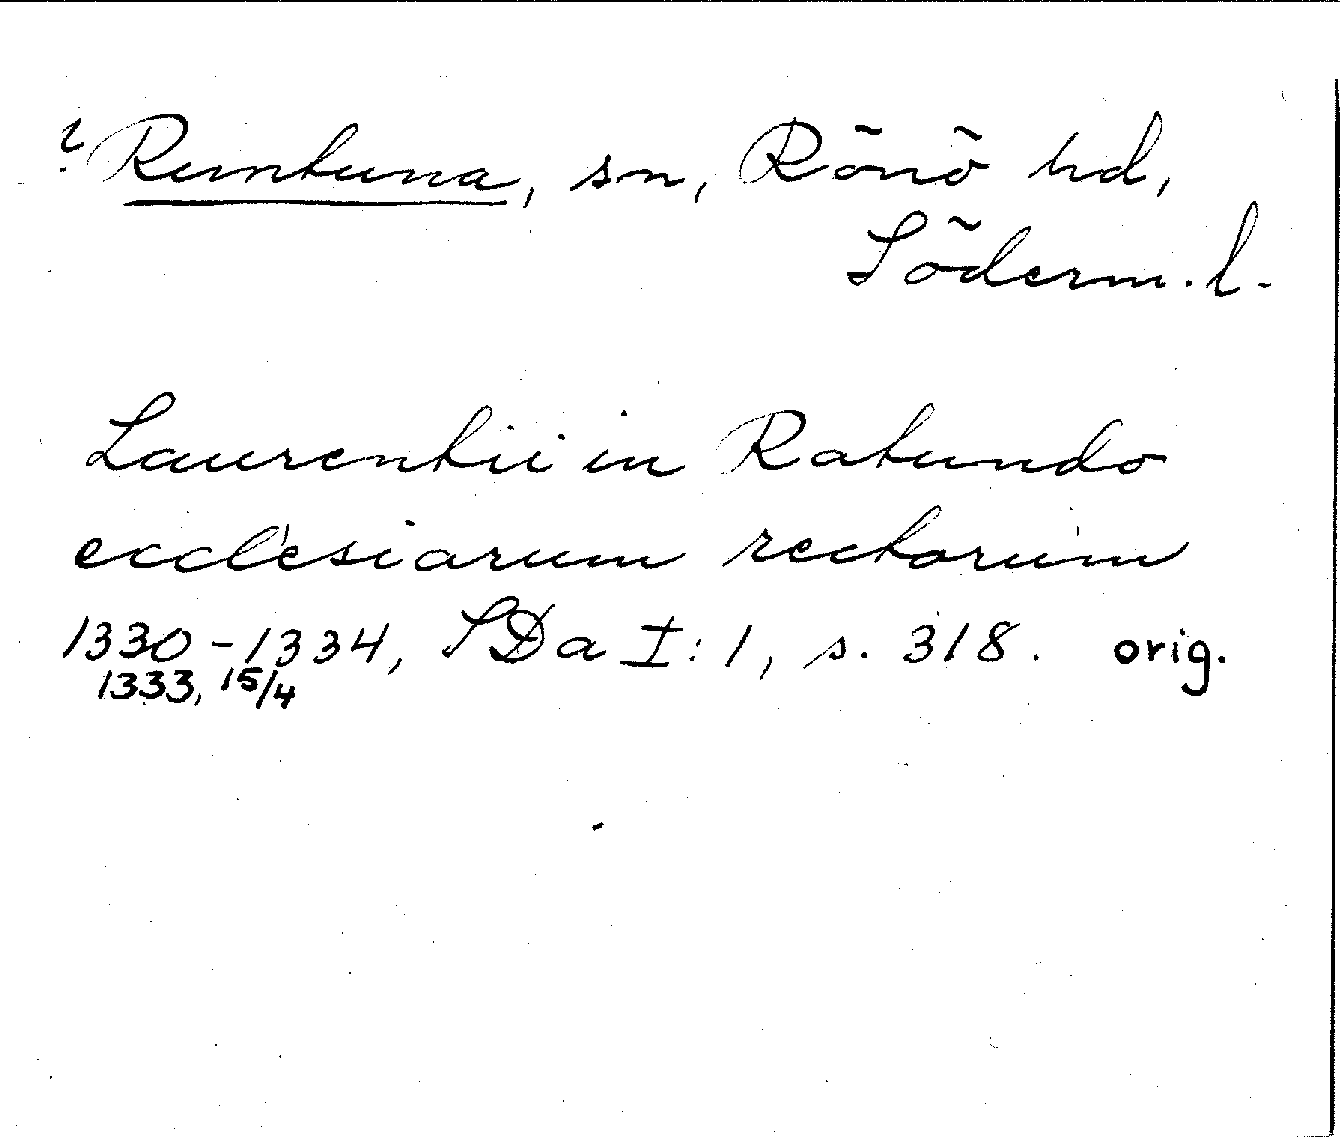 ? Runtuna, sn, Rönö hd,
Söderm. l.
Laurentii in Ratundo
ecclesiarum rectorum
1330-1334, SDa I:1, s. 318. orig.
1333, 15/4